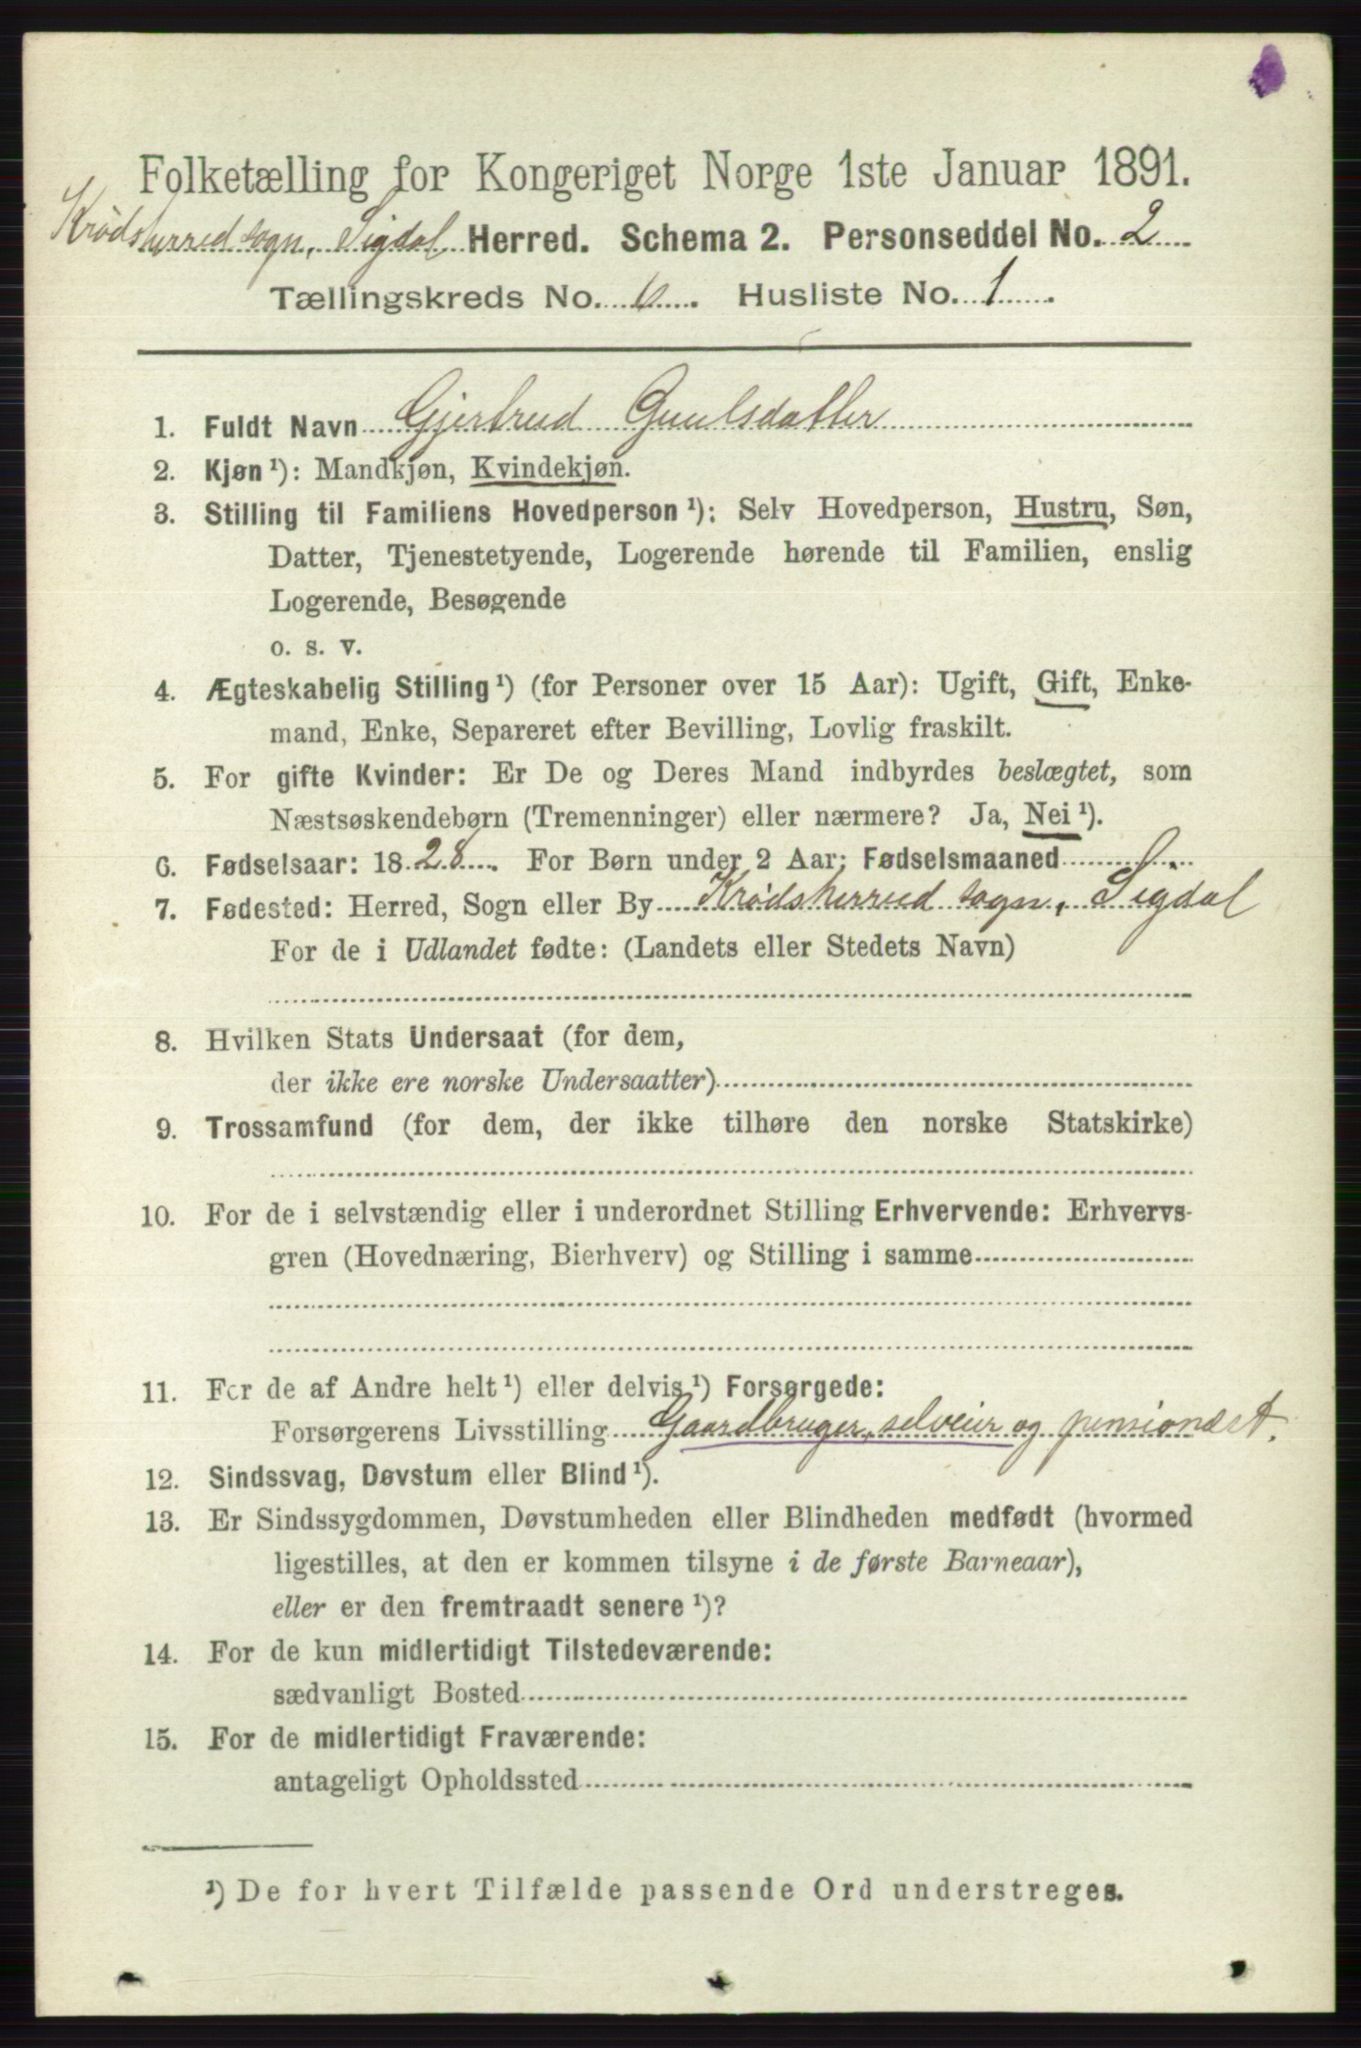 Folketælling for Kongeriget Norge 1ste Januar 1891.
Krødsherred sogn, Sigdal Herred. Schema 2. Personseddel No. 2
Tællingskreds No. 6. Husliste No. 1
1. Fuldt Navn Gjertrud Guulsdatter
2. Kjøn¹): Mandkjøn, Kvindekjøn.
3. Stilling til Familiens Hovedperson¹): Selv Hovedperson, Hustru, Søn,
Datter, Tjenestetyende, Logerende hørende til Familien, enslig
Logerende, Besøgende
o. s. v.
4. Ægteskabelig Stilling¹) (for Personer over 15 Aar): Ugift, Gift, Enke-
mand, Enke, Separeret efter Bevilling, Lovlig fraskilt.
5. For gifte Kvinder: Er De og Deres Mand indbyrdes beslægtet, som
Næstsøskendebørn (Tremenninger) eller nærmere? Ja, Nei¹).
6. Fødselsaar: 1828. For Børn under 2 Aar: Fødselsmaaned
7. Fødested: Herred, Sogn eller By Krødsherred sogn, Sigdal
For de i Udlandet fødte: (Landets eller Stedets Navn)
8. Hvilken Stats Undersaat (for dem,
der ikke ere norske Undersaatter)
9. Trossamfund (for dem, der ikke tilhøre den norske Statskirke)
10. For de i selvstændig eller i underordnet Stilling Erhvervende: Erhvervs-
gren (Hovednæring, Bierhverv) og Stilling i samme
11. For de af Andre helt¹) eller delvis¹) Forsørgede:
Forsørgerens Livsstilling Gaardbruger, selveier og pensionært.
12. Sindssvag, Døvstum eller Blind¹).
13. Er Sindssygdommen, Døvstumheden eller Blindheden medfødt (hvormed
ligestilles, at den er kommen tilsyne i de første Barneaar),
eller er den fremtraadt senere¹)?
14. For de kun midlertidigt Tilstedeværende:
sædvanligt Bosted
15. For de midlertidigt Fraværende:
antageligt Opholdssted
¹) De for hvert Tilfælde passende Ord understreges.